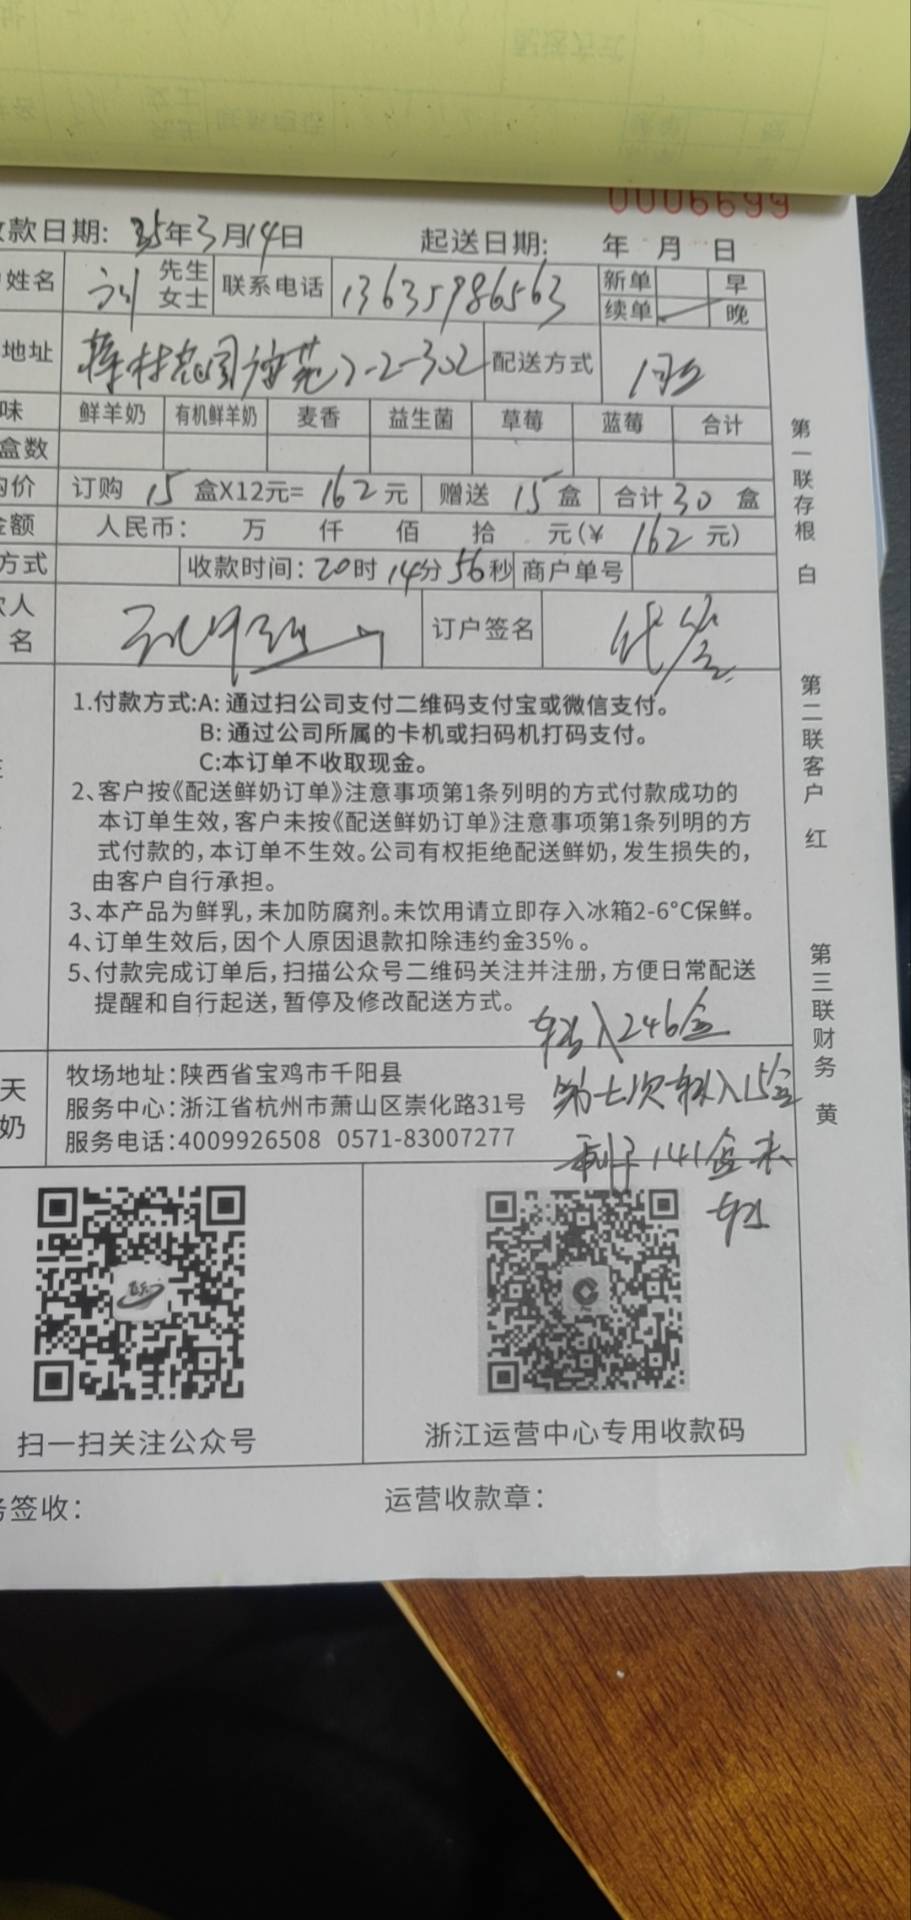 0006699
款日期: 25年3月14日 起送日期: 年 月 日
姓名 刘 先生 女士 联系电话 13635986563 新单 早
续单 晚
地址 2-2-302 配送方式
味 鲜羊奶 有机鲜羊奶 麦香 益生菌 草莓 蓝莓 合计
盒数
购价 订购 15 盒X12元= 162元 赠送 15 盒 合计30 盒
金额 人民币: 万 仟 佰 拾 元(¥ 162 元)
方式 收款时间: 20时14分56秒 商户单号
款人
名 订户签名 代签
1.付款方式:A: 通过扫公司支付二维码支付宝或微信支付。
B: 通过公司所属的卡机或扫码机打码支付。
C:本订单不收取现金。
2、客户按《配送鲜奶订单》注意事项第1条列明的方式付款成功的
本订单生效, 客户未按《配送鲜奶订单》注意事项第1条列明的方
式付款的, 本订单不生效。公司有权拒绝配送鲜奶, 发生损失的,
由客户自行承担。
3、本产品为鲜乳, 未加防腐剂。未饮用请立即存入冰箱2-6°C保鲜。
4、订单生效后, 因个人原因退款扣除违约金35%。
5、付款完成订单后, 扫描公众号二维码关注并注册, 方便日常配送
提醒和自行起送, 暂停及修改配送方式。
转入246盒
第七次转入15盒
剩于141盒未
转
天
奶
牧场地址:陕西省宝鸡市千阳县
服务中心:浙江省杭州市萧山区崇化路31号
服务电话:4009926508 0571-83007277
扫一扫关注公众号
浙江运营中心专用收款码
务签收:
运营收款章:
第一联存根 白
第二联客户 红
第三联财务 黄